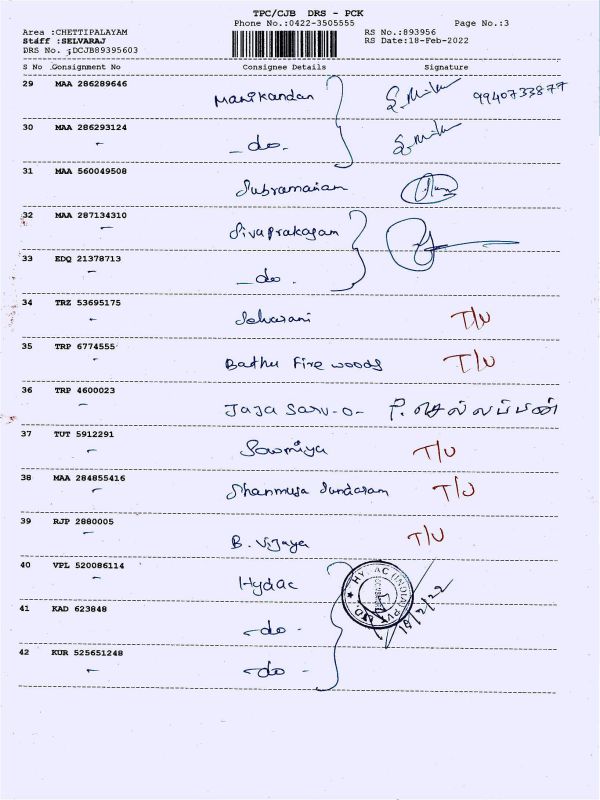 TPC/CJB DRS - PCK
Phone No.:0422-3505555 Page No.:3
Area :CHETTIPALAYAM RS No.:893956
Staff :SELVARAJ RS Date:18-Feb-2022
DRS No. :DCJB89395603
S No Consignment No Consignee Details Signature
29 MAA 286289646 Manikandan 9940733877
30 MAA 286293124 - do -
31 MAA 560049508 Subramaniam
32 MAA 287134310 Sivaprakasam
33 EDQ 21378713 - do -
34 TRZ 53695175 T/U
35 TRP 6774555 Bathu Fire woods T/U
36 TRP 4600023 Jaja Sarv-o- P. செல்லப்பன்
37 TUT 5912291 Sowmiya T/U
38 MAA 284855416 Shanmuga Sundaram T/U
39 RJP 2880005 B. Vijaya T/U
40 VPL 520086114 Hydac HYDAC (INDIA) PVT. LTD.
18/2/22
41 KAD 623848 - do -
42 KUR 525651248 - do -